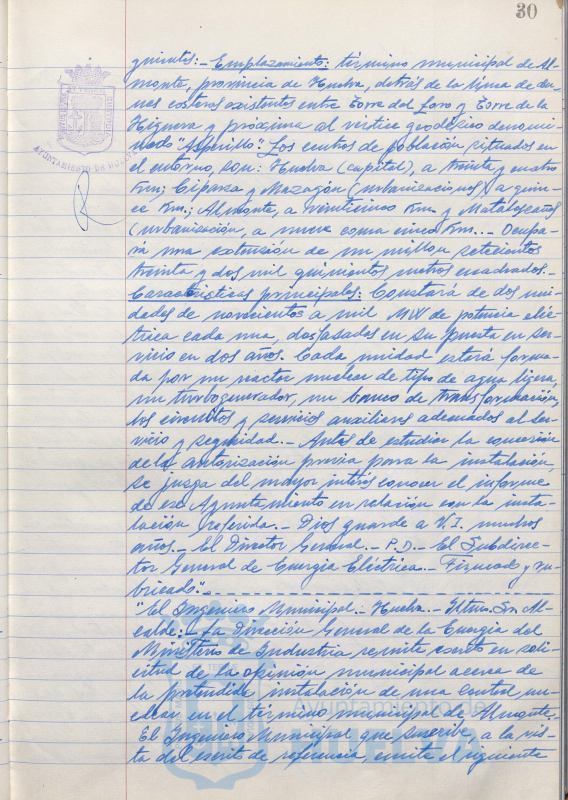 30
guientes:- Emplazamiento: término municipal de Al-
monte, provincia de Huelva, detrás de la línea de du-
nas costeras existentes entre Torre del Loro y Torre de la
Higuera y próxima al vértice geodésico denomi-
nado "Asperillo". Los centros de población situados en
el entorno, son: Huelva (capital), a treinta y cuatro
Km; Ciparsa y Mazagón (urbanizaciones) a quin-
ce Km.; Almonte, a veinticinco Km. y Matalascañas
(urbanización, a nueve coma cinco Km.- Ocupa-
rá una extensión de un millón setecientos
treinta y dos mil quinientos metros cuadrados.-
Características principales: Constará de dos uni-
dades de novecientos a mil MW de potencia eléc-
trica cada una, desfasadas en su puesta en ser-
vicio en dos años. Cada unidad estará forma-
da por un reactor nuclear de tipo de agua ligera,
un turbogenerador, un banco de transformación,
los circuitos y servicios auxiliares adecuados al ser-
vicio y seguridad.- Antes de estudiar la concesión
de la autorización previa para la instalación,
se juzga del mayor interés conocer el informe
de ese Ayuntamiento en relación con la insta-
lación referida.- Dios guarde a V.I. muchos
años.- El Director General.- P.D.- El Subdirec-
tor General de Energía Eléctrica.- Firmado y ru-
bricado".
"El Ingeniero Municipal.- Huelva.- Iltmo. Sr. Al-
calde:- La Dirección General de la Energía del
Ministerio de Industria remite escrito en solici-
citud de la opinión municipal acerca de
la pretendida instalación de una central nu-
clear en el término municipal de Almonte.
El Ingeniero Municipal que suscribe, a la vis-
ta del escrito de referencia, emite el siguiente
AYUNTAMIENTO DE HUELVA
Ayuntamiento de
HUELVA